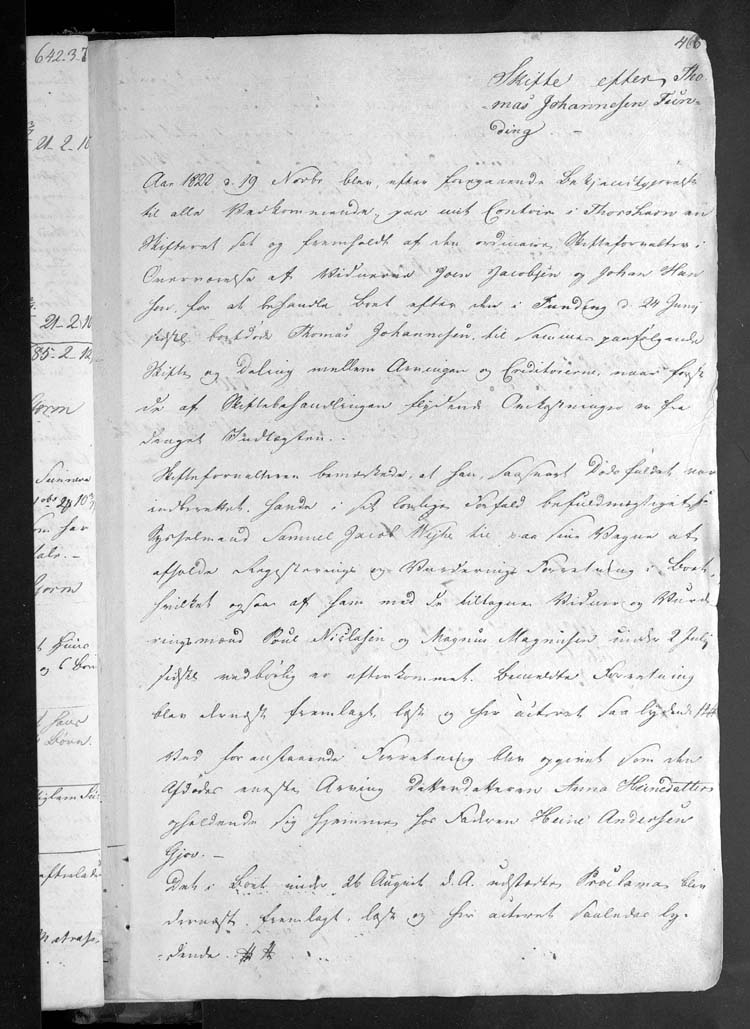 642-3-7
21-2-10
21-2-10
85-2-12
som har
og 6 Børn
Børn.
466
Skifte efter Tho-
-mas Johannesen Fun-
ding -
Aar 1822 d. 19 Novbr blev, efter foregaaende Bekjendtgjørelse
til alle Vedkommende, paa mit Contoir i Thorshavn en
Skifteret sat og fremholdt af den ordinaire Skifteforvalter i
Overværelse af Vidnerne Joen Jacobsen og Johan Han
sen, for at behandle Boet efter den i Funding d. 24 Juny
sidstl. bortdøde Thomas Johannesen, til Sammes paafølgende
Skifte og Deling mellem Arvingen og Creditorerne, naar først
de af Skiftebehandlingen flydende Omkostninger er fra
draget Indtægten..
Skifteforvalteren bemærkede, at han, saasnart Dødsfaldet var
indberettet, havde i sit lovlige Forfald befuldmægtiget
Sysselmand Samuel Jacob Weyhe til paa sine Vegne at
afholde Registrerings og Vurderings Forretning i Boet,
hvilket ogsaa af ham med de tiltagne Vidner og Vurde
ringsmænd Poul Niclasen og Magnus Magnusen under 2 July
sidstl. vedbørlig er efterkommet. Bemeldte Forretning
blev dernæst fremlagt, læst og her acteret saa lydende
Ved foranstaaende Forretning blev opgivet som den
Afdødes eneste Arving Datterdatteren Anna Heinedatter
opholdende sig hjemme hos Faderen Heine Andersen
Gjov. -
Det i Boet under 26 August d.A. udstædte Proclama blev
dernæst fremlagt, læst og her acteret saaledes ly-
-dende